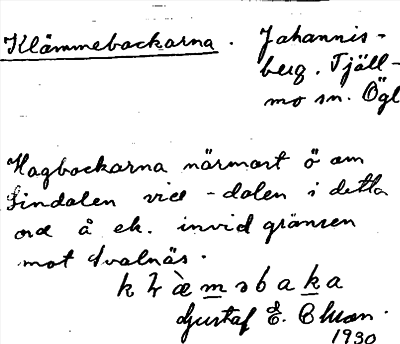 Klämmebackarna. Johannis-
berg. Tjäll-
mo sn. Ögl
Hagbackarna närmast ö om
Lindalen vid -dalen i detta
ord å ek. invid gränsen
mot Svalnäs.
Gustaf E. C
1930